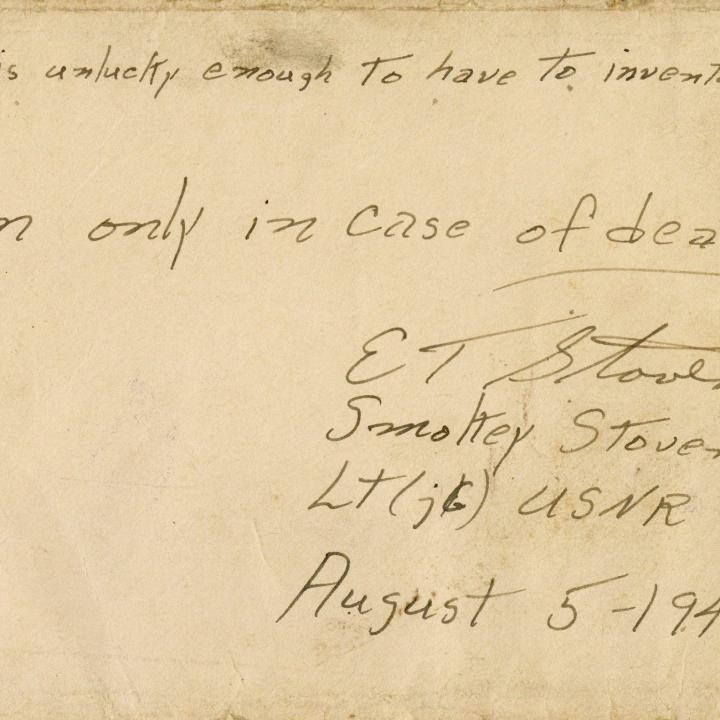 is unlucky enough to have to invent
n only in case of dea
ET Stove
Smokey Stover
Lt(jG) USNR
August 5-194